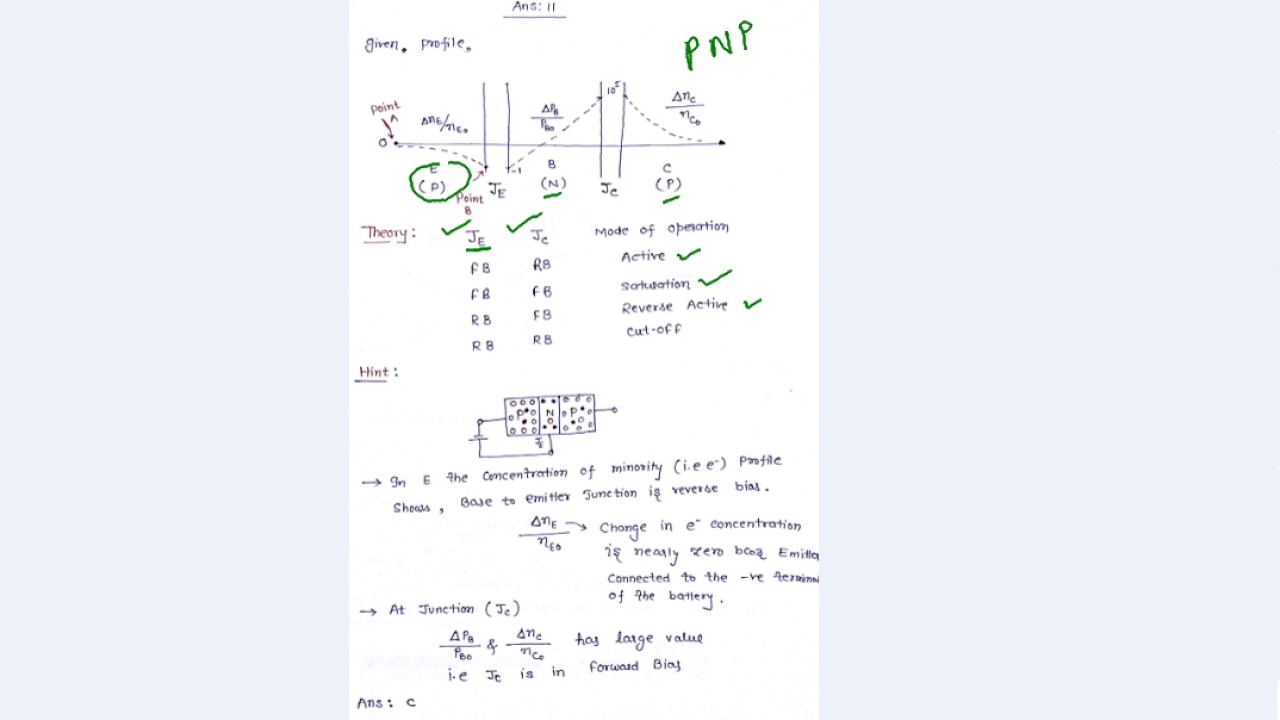 Ans: 11
Given. Profile,
PNP
Point
A
ΔnE/nEo
ΔPB
PBo
10^5
ΔnC
nCo
0
-1
E
(P)
Point
B
JE
B
(N)
Jc
C
(P)
Theory:
JE Jc Mode of operation
FB RB Active
FB FB Saturation
RB FB Reverse Active
RB RB Cut-off
Hint:
P N P
JE
→ In E the concentration of minority (i.e e-) Profile
Shows, Base to emitter Junction is reverse bias.
ΔnE/nEo → Change in e- concentration
is nearly zero bcoz Emitte
Connected to the -ve termina
of the battery.
→ At Junction (Jc)
ΔPB/PBo & Δnc/nCo has large value
i.e Jc is in forward Bias
Ans: C